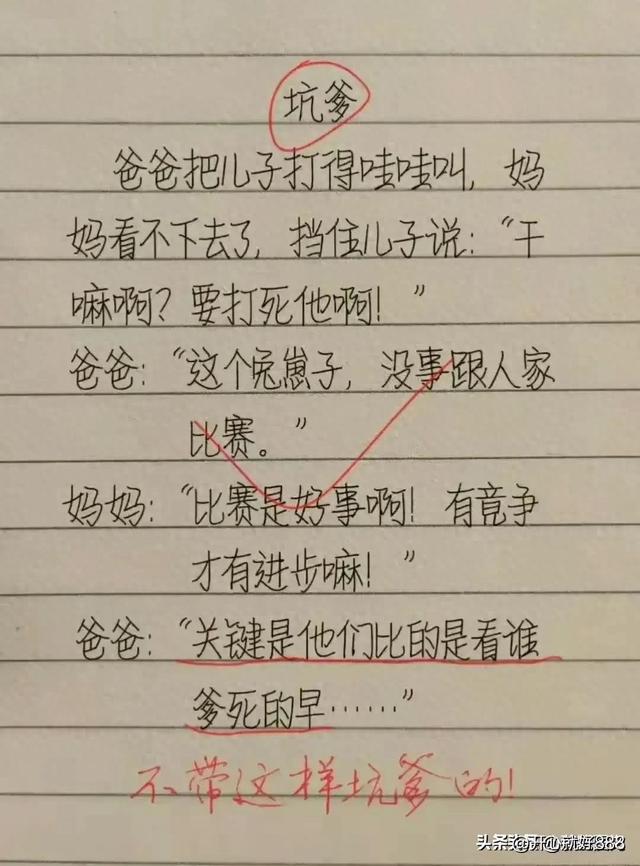 坑爹
爸爸把儿子打得哇哇叫，妈
妈看不下去了，挡住儿子说：“干
嘛啊？要打死他啊！”
爸爸：“这个兔崽子，没事跟人家
比赛。”
妈妈：“比赛是好事啊！有竞争
才有进步嘛！”
爸爸：“关键是他们比的是看谁
爹死的早……”
不带这样坑爹的！